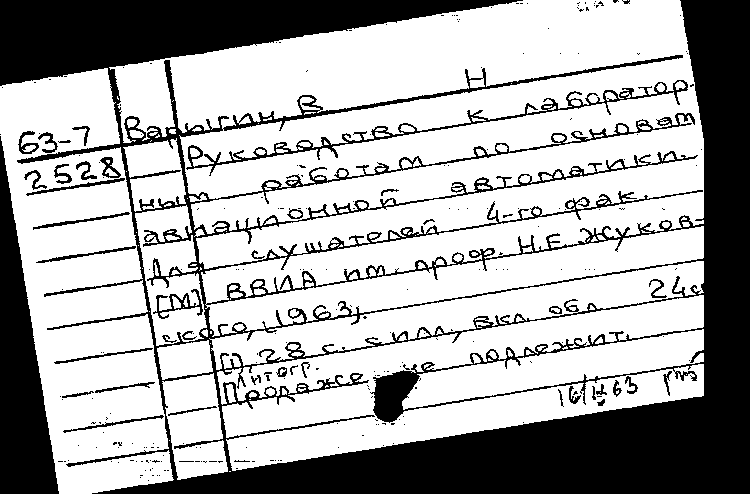 63-7 Варыгин, В Н
2528 Руководство к лаборатор-
ным работам по основам
авиационной автоматики.
Для слушателей 4-го фак.
[М], ВВИА им. проф. Н.Е. Жуков-
ского, [1963].
[1], 28 с. с илл., вкл. обл 24 см
Литогр.
Продаже не подлежит.
63